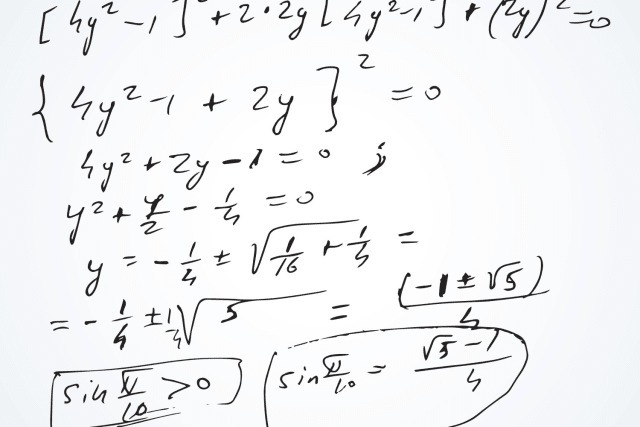 [4y² - 1]² + 2·2y[4y² - 1] + (2y)² = 0
{4y² - 1 + 2y}² = 0
4y² + 2y - 1 = 0 ;
y² + y/2 - 1/4 = 0
y = - 1/4 ± √(1/16 + 1/4) =
= - 1/4 ± 1/4 √5 = (-1 ± √5)/4
sin π/10 > 0 sin π/10 = (√5 - 1)/4